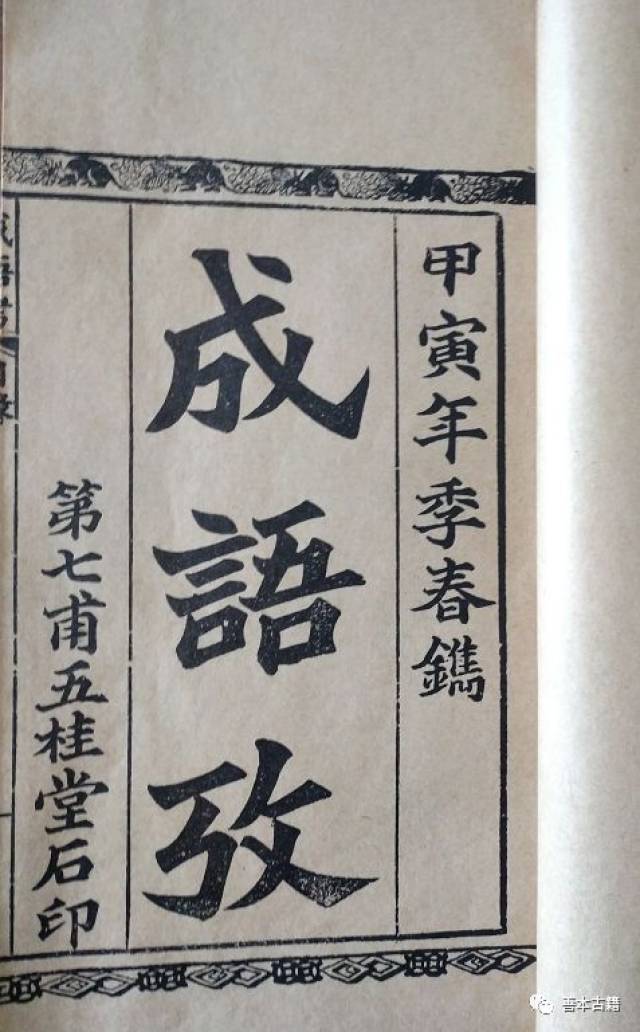 甲寅年季春鐫
成語攷
第七甫五桂堂石印
善本古籍